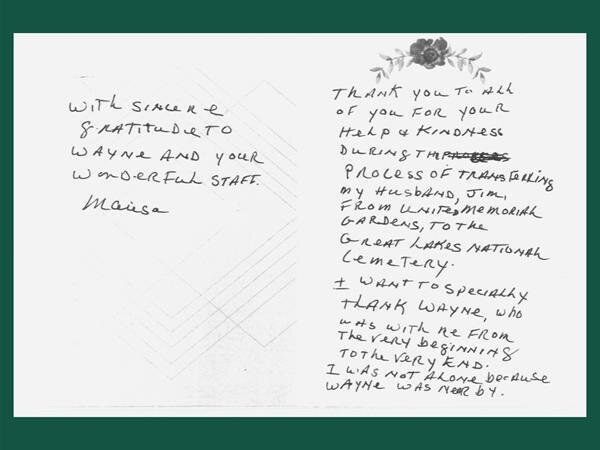 WITH SINCERE
GRATITUDE TO
WAYNE AND YOUR
WONDERFUL STAFF.
THANK YOU TO ALL
OF YOU FOR YOUR
HELP & KINDNESS
DURING THE
PROCESS OF TRANSFERRING
MY HUSBAND, JIM,
FROM UNITED MEMORIAL
GARDENS, TO THE
GREAT LAKES NATIONAL
CEMETERY.
I WANT TO SPECIALLY
THANK WAYNE, WHO
WAS WITH ME FROM
THE VERY BEGINNING
TO THE VERY END.
I WAS NOT ALONE BECAUSE
WAYNE WAS NEARBY.